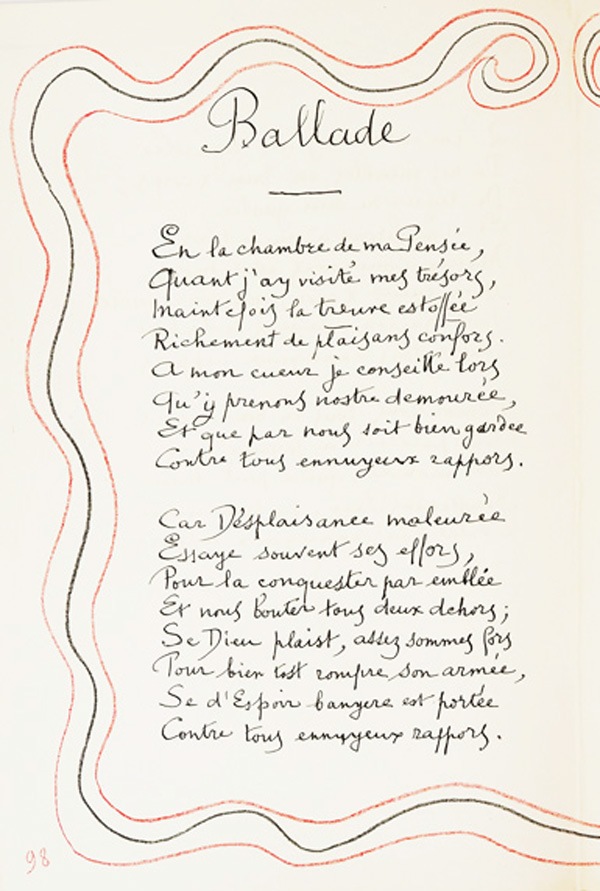 Ballade
En la chambre de ma Pensée,
Quant j'ay visité mes trésors,
Maintefois la treuve estoffée
Richement de plaisans confors.
A mon cueur je conseille lors
Qu'y prenons nostre demourée,
Et que par nous soit bien gardée
Contre tous ennuyeux rappors.
Car Désplaisance maleurée
Essaye souvent ses effors,
Pour la conquester par emblée
Et nous bouter tous deux dehors;
Se Dieu plaist, assez sommes fors
Pour bien tost rompre son armée,
Se d'Espoir banyere est portée
Contre tous ennuyeux rappors.
98